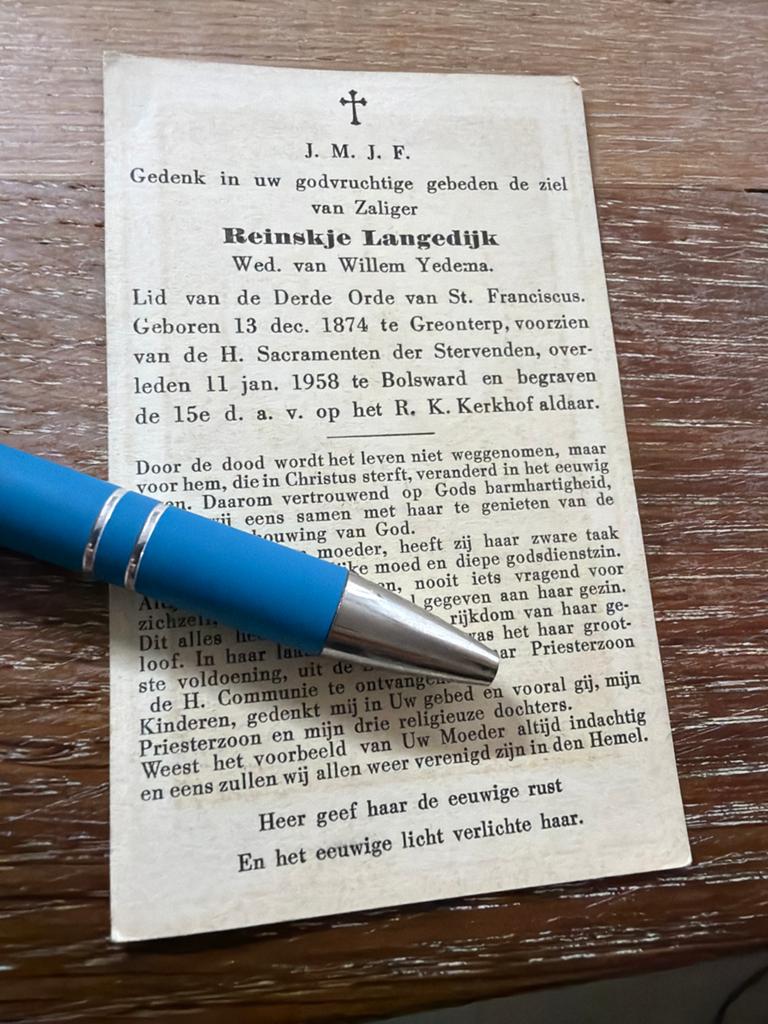 J. M. J. F.
Gedenk in uw godvruchtige gebeden de ziel
van Zaliger
Reinskje Langedijk
Wed. van Willem Yedema.
Lid van de Derde Orde van St. Franciscus.
Geboren 13 dec. 1874 te Greonterp, voorzien
van de H. Sacramenten der Stervenden, over-
leden 11 jan. 1958 te Bolsward en begraven
de 15e d. a. v. op het R. K. Kerkhof aldaar.
Door de dood wordt het leven niet weggenomen, maar
voor hem, die in Christus sterft, veranderd in het eeuwig
Daarom vertrouwend op Gods barmhartigheid,
eens samen met haar te genieten van de
van God.
moeder, heeft zij haar zware taak
moed en diepe godsdienstzin.
nooit iets vragend voor
gegeven aan haar gezin.
Dit alles rijkdom van haar ge-
loof. In haar was het haar groot-
ste voldoening, uit de Priesterzoon
de H. Communie te
Kinderen, gedenkt mij in Uw gebed en vooral gij, mijn
Priesterzoon en mijn drie religieuze dochters.
Weest het voorbeeld van Uw Moeder altijd indachtig
en eens zullen wij allen weer verenigd zijn in den Hemel.
Heer geef haar de eeuwige rust
En het eeuwige licht verlichte haar.